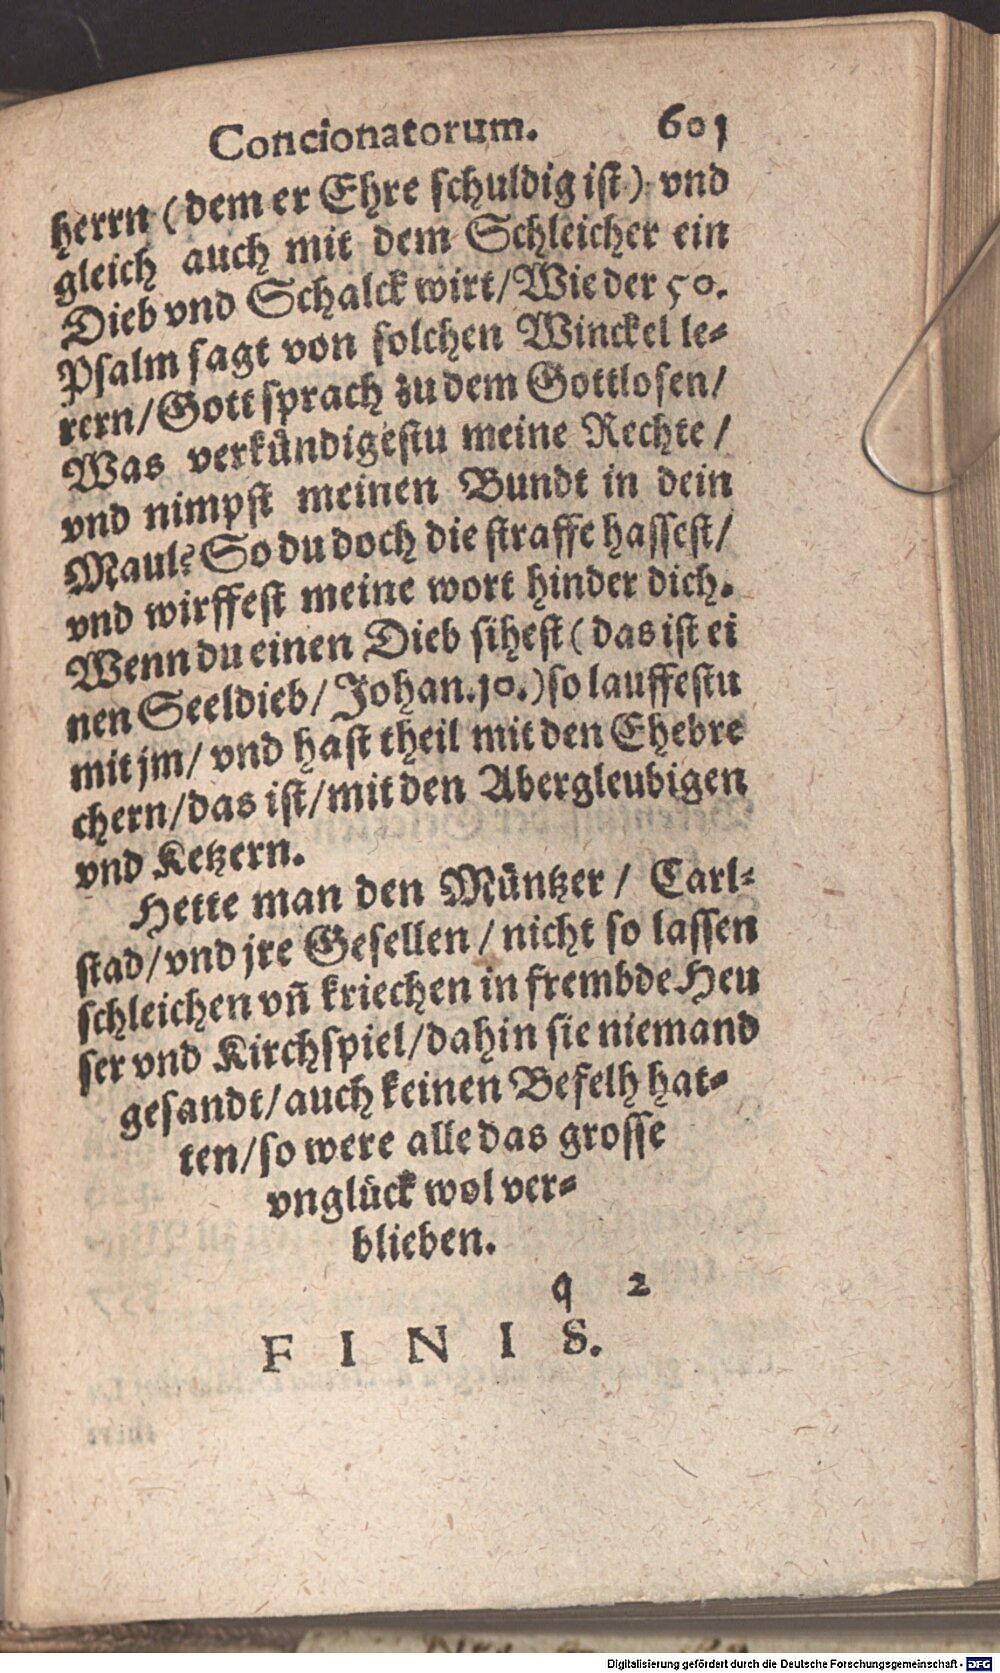 Concionatorum. 601
herrn (dem er Ehre schuldig ist) vnd
gleich auch mit dem Schleicher ein
Dieb vnd Schalck wirt/Wie der 50.
Psalm sagt von solchen Winckel le-
rern/Gott sprach zu dem Gottlosen/
Was verkündigestu meine Rechte/
vnd nimpst meinen Bundt in dein
Maul? So du doch die straffe hassest/
vnd wirffest meine wort hinder dich.
Wenn du einen Dieb sihest (das ist ei
nen Seeldieb/Johan.10.) so lauffestu
mit jm/vnd hast theil mit den Ehebre
chern/das ist/mit den Abergleubigen
vnd Ketzern.
Hette man den Müntzer/ Carl-
stad/vnd jre Gesellen/nicht so lassen
schleichen vñ kriechen in frembde Heu
ser vnd Kirchspiel/dahin sie niemand
gesandt/auch keinen Befelh hat-
ten/so were alle das grosse
vnglück wol ver-
blieben.
q 2
FINIS.
Digitalisierung gefördert durch die Deutsche Forschungsgemeinschaft - DFG